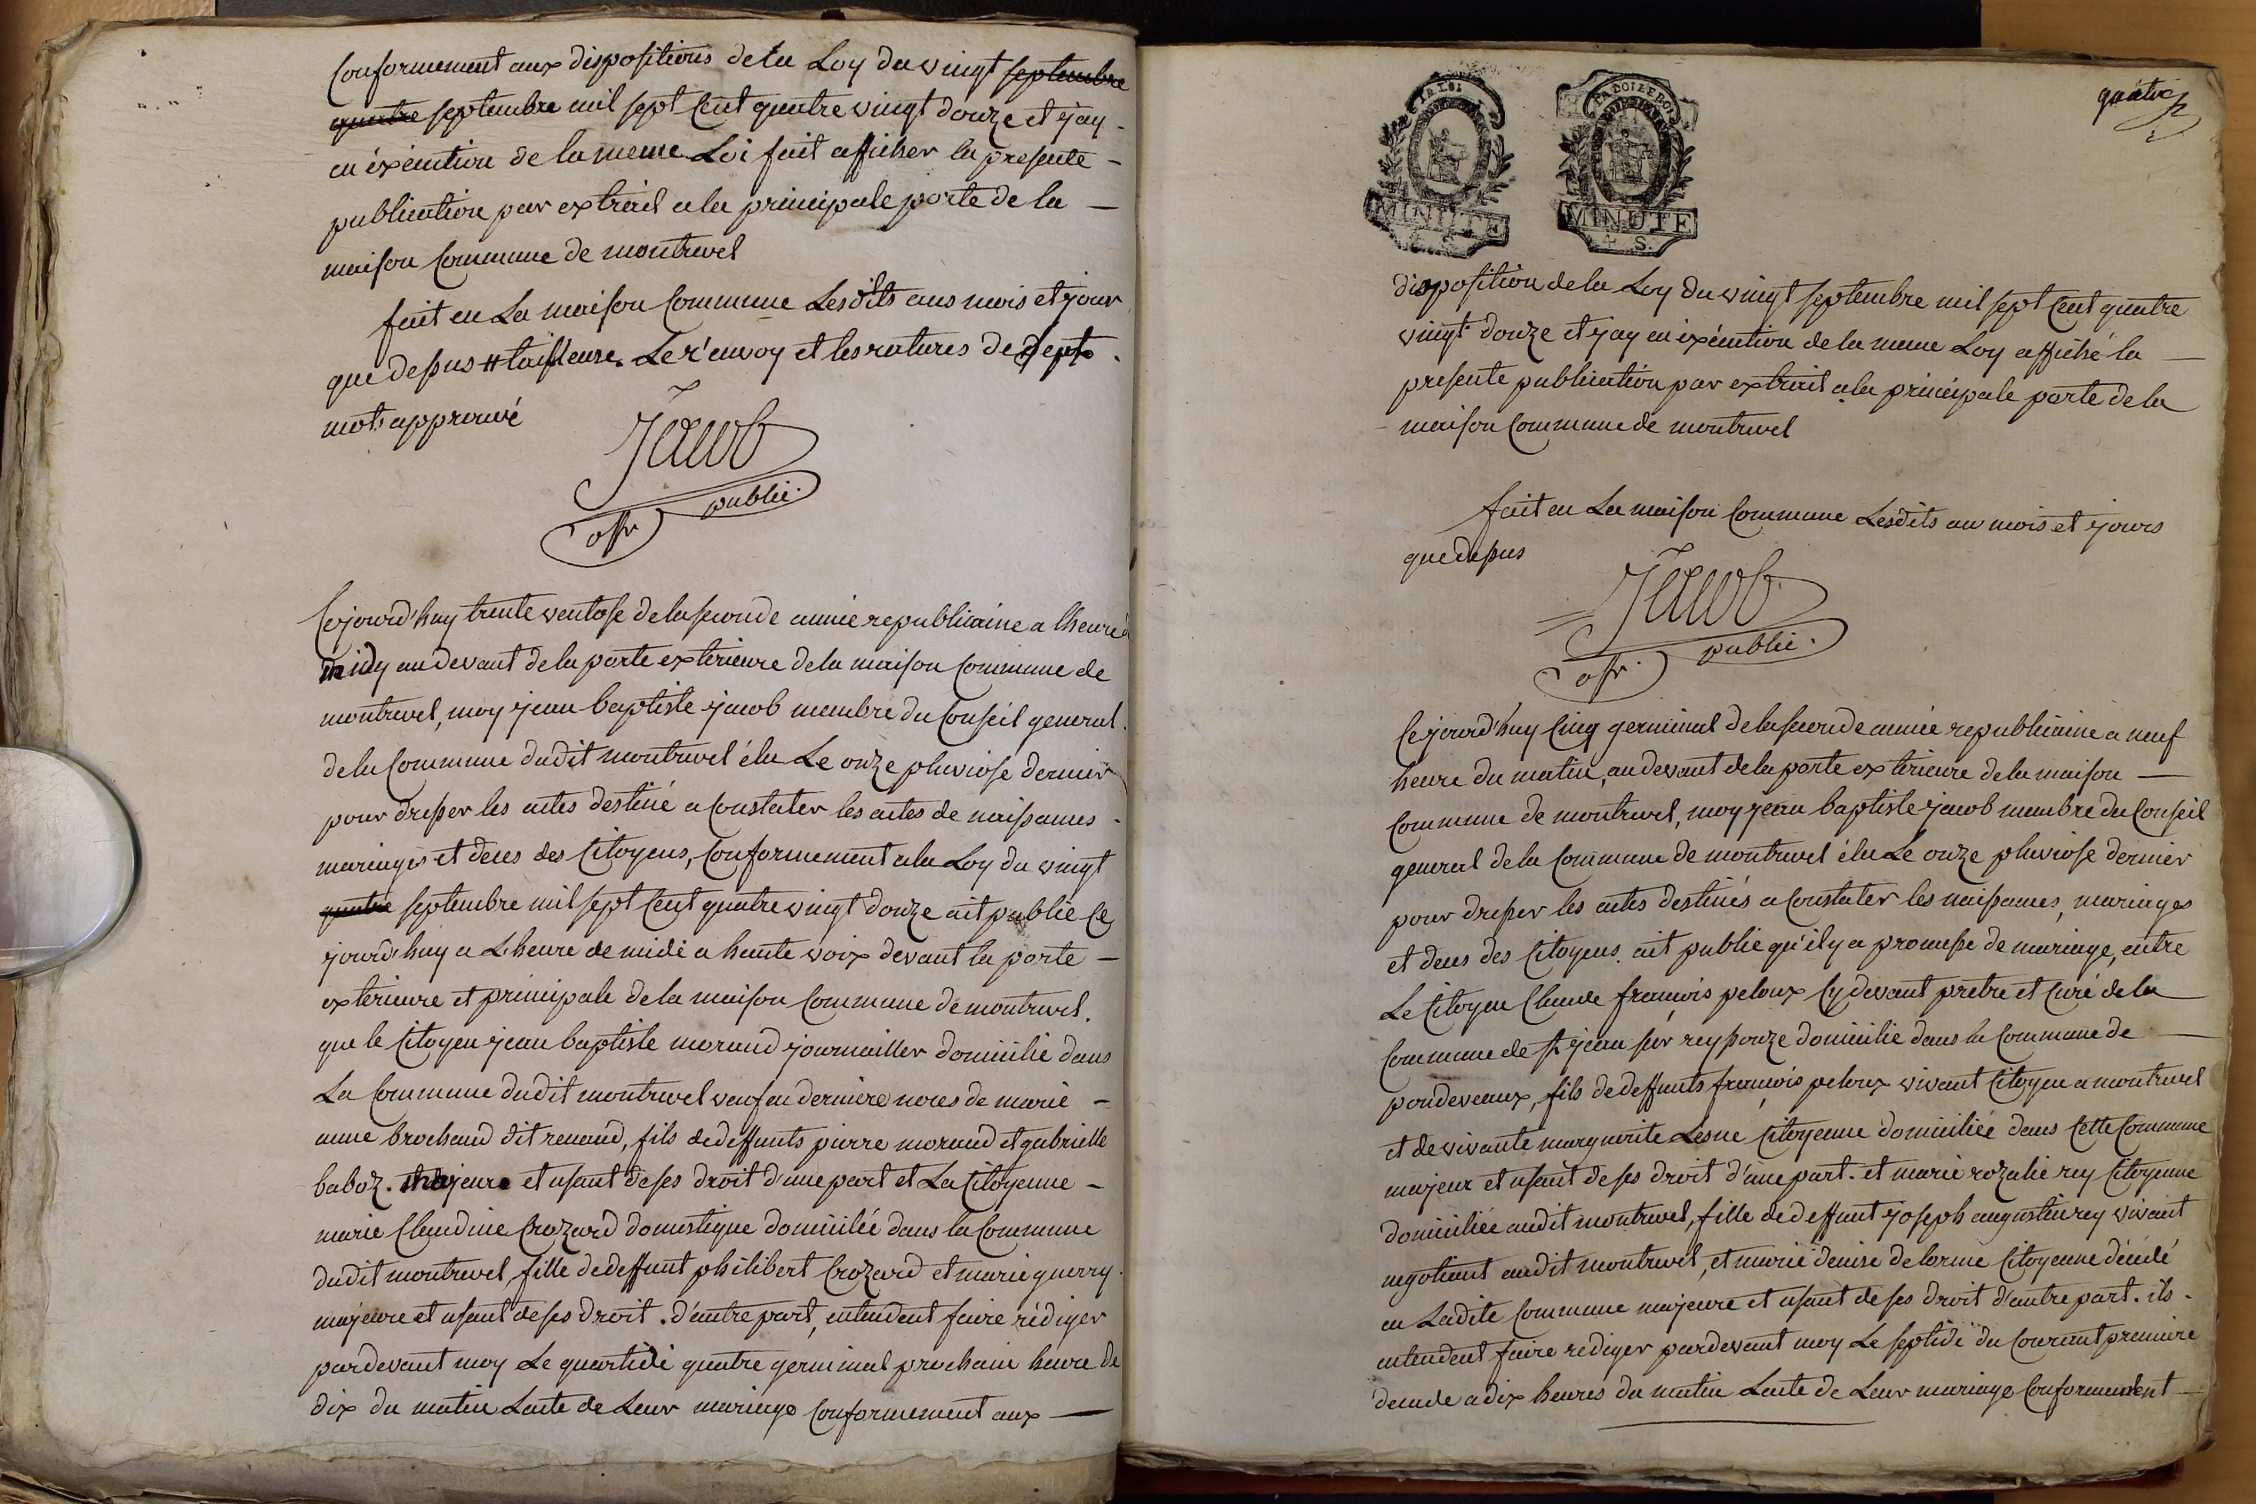 Conformement aux dispositions de la Loy du vingt septembre
quatre septembre mil sept Cent quatre vingt douze et j'ay
en éxécution de la meme Loi fait afficher la presente
publication par extrait a la principale porte de la
maison Commune de montrevel
fait en La maison Commune Lesdits ans mois et jour
que dessus # tailleuse. Le r'envoy et les ratures de sept
mots approuvé
Jacob
offr public.
Cejourd'huy trente ventose de la seconde année republicaine a lheure de
midy au devant de la porte exterieure de la maison Commune de
montrevel, moy jean baptiste jacob membre du Conseil general
de la Commune dudit montrevel élu Le onze pluviose dernier
pour dresser les actes destiné a Constater les actes de naissances
mariages et deces des Citoyens, Conformement a la Loy du vingt
quatre septembre mil sept Cent quatre vingt douze ait publié Ce
jourd'huy a L'heure de midi a haute voix devant la porte
exterieure et principale de la maison Commune de montrevel.
que le Citoyen jean baptiste morand journailler domicilié dans
La Commune dudit montrevel veuf en derniere noces de marie
anne brochand dit renand, fils de deffunts pierre morand et gabrielle
baboz. majeure et usant de ses droit d'une part et La Citoyenne
marie Claudine Crozard domestique domiciliée dans la Commune
dudit montrevel, fille de deffunt philibert Crozard et marie guerry
majeure et usant de ses droit. d'autre part, entendent faire rédiger
pardevant moy Le quartidi quatre germinal prochain heure de
dix du matin Lacte de Leur mariage Conformement aux
quatre
LA LOI
MINUTE
4 S.
LA LOI ET LE ROI
MINUTE
4 S.
disposition de la Loy du vingt septembre mil sept Cent quatre
vingt douze et j'ay en éxécution de la meme Loy affiché la
presente publication par extrait a la principale porte de la
maison Commune de montrevel
fait en La maison Commune Lesdits an mois et jours
que dessus
Jacob
offr. public.
Cejourd'huy Cinq germinal de la seconde année republicaine a neuf
heure du matin, au devant de la porte exterieure de la maison
Commune de montrevel, moy jean baptiste jacob membre du Conseil
general de la Commune de montrevel élu Le onze pluviose dernier
pour dresser les actes destinés a Constater les naissances, mariages
et deces des Citoyens. ait publié qu'il y a promesse de mariage, entre
Le Citoyen Claude françois peloux Cy devant pretre et Curé de la
Commune de St jean sur reyssouze domicilié dans la Commune de
pondeveaux, fils de deffunts françois peloux vivant Citoyen a montrevel
et de vivante marguerite Lesne Citoyenne domiciliée dans Cette Commune
majeur et usant de ses droit d'une part. et marie rozalie rey Citoyenne
domiciliée audit montrevel, fille de deffunt joseph augustin rey vivant
negotiant audit montrevel, et marie denise delorme Citoyenne décédé
en Ladite Commune majeure et usant de ses droit d'autre part. ils
entendent faire rediger pardevant moy Le septidi du Courant premiere
decade a dix heures du matin Lacte de Leur mariage Conformement